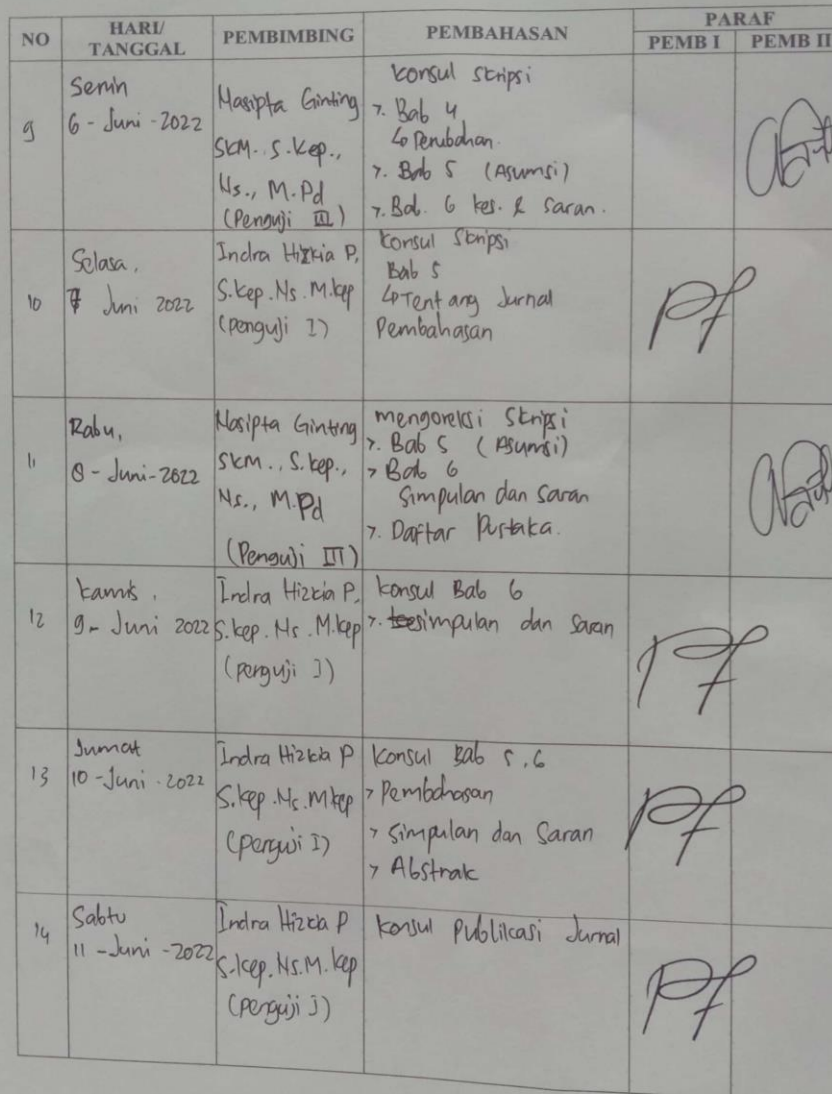 NO HARI/ TANGGAL PEMBIMBING PEMBAHASAN PARAF
PEMB I PEMB II
9
Senin
6 - Juni - 2022
Masipta Ginting
SKM. S.Kep.,
Ns., M.Pd
(Penguji III)
Konsul Skripsi
>. Bab 4
↳ Perubahan.
>. Bab 5 (Asumsi)
>. Bab. 6 kes. & Saran.
10
Selasa,
7 Juni 2022
Indra Hizkia P,
S.Kep.Ns.M.kep
(penguji I)
Konsul Skripsi
Bab 5
↳ Tentang Jurnal
Pembahasan
11
Rabu,
8 - Juni - 2022
Masipta Ginting
SKM., S.kep.,
Ns., M.Pd
(Penguji III)
mengoreksi Skripsi
>. Bab 5 (Asumsi)
> Bab 6
Simpulan dan Saran
>. Daftar Pustaka.
12
Kamis,
9 - Juni 2022
Indra Hizkia P,
S.kep.Ns.M.kep
(penguji I)
Konsul Bab 6
>. simpulan dan Saran
13
Jumat
10 - Juni - 2022
Indra Hizkia P
S.kep.Ns.Mkep
(penguji I)
Konsul Bab 5,6
> Pembahasan
> Simpulan dan Saran
> Abstrak
14
Sabtu
11 - Juni - 2022
Indra Hizkia P
S.kep.Ns.M.kep
(penguji I)
Konsul Publikasi Jurnal